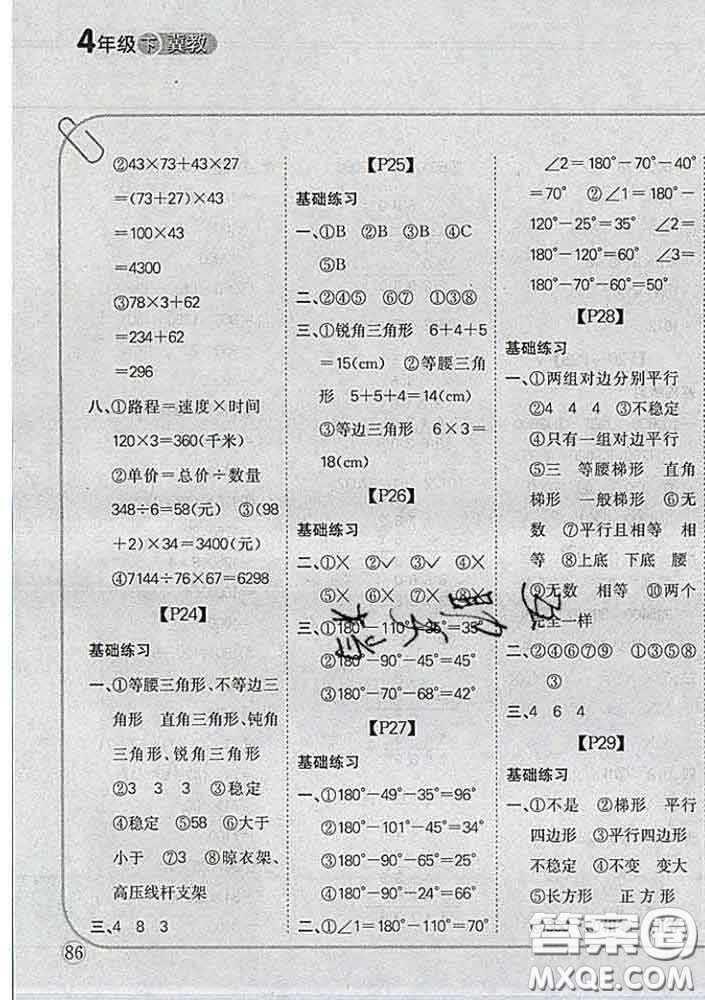 4年级 下 冀教
②43×73+43×27
=(73+27)×43
=100×43
=4300
③78×3+62
=234+62
=296
八、①路程=速度×时间
120×3=360(千米)
②单价=总价÷数量
348÷6=58(元) ③(98
+2)×34=3400(元)
④7144÷76×67=6298
【P24】
基础练习
一、①等腰三角形、不等边三
角形 直角三角形、钝角
三角形、锐角三角形
②3 3 3 ③稳定
④稳定 ⑤58 ⑥大于
小于 ⑦3 ⑧晾衣架、
高压线杆支架
三、4 8 3
86
【P25】
基础练习
一、①B ②B ③B ④C
⑤B
二、②④⑤ ⑥⑦ ①③⑧
三、①锐角三角形 6+4+5
=15(cm) ②等腰三角
形 5+5+4=14(cm)
③等边三角形 6×3=
18(cm)
【P26】
基础练习
二、①× ②✓ ③✓ ④×
⑤× ⑥× ⑦× ⑧
三、①180°-110°-35°=35°
②180°-90°-45°=45°
③180°-70°-68°=42°
【P27】
基础练习
一、①180°-49°-35°=96°
②180°-101°-45°=34°
③180°-90°-60°=30°
④180°-90°-24°=66°
二、①∠1=180°-110°=70°
∠2=180°-70°-40°
=70° ②∠1=180°-
120°-25°=35° ∠2=
180°-120°=60° ∠3=
180°-70°-60°=50°
【P28】
基础练习
一、①两组对边分别平行
②4 4 4 ③不稳定
④只有一组对边平行
⑤三 等腰梯形 直角
梯形 一般梯形 ⑥无
数 ⑦平行且相等 相
等 ⑧上底 下底 腰
⑨无数 相等 ⑩两个
完全一样
二、②④⑥⑦⑨ ①③⑤⑧
③
三、4 6 4
【P29】
基础练习
一、①不是 ②梯形 平行
四边形 ③平行四边形
不稳定 ④不变 变大
⑤长方形 正方形
答案圈
MXQE.COM